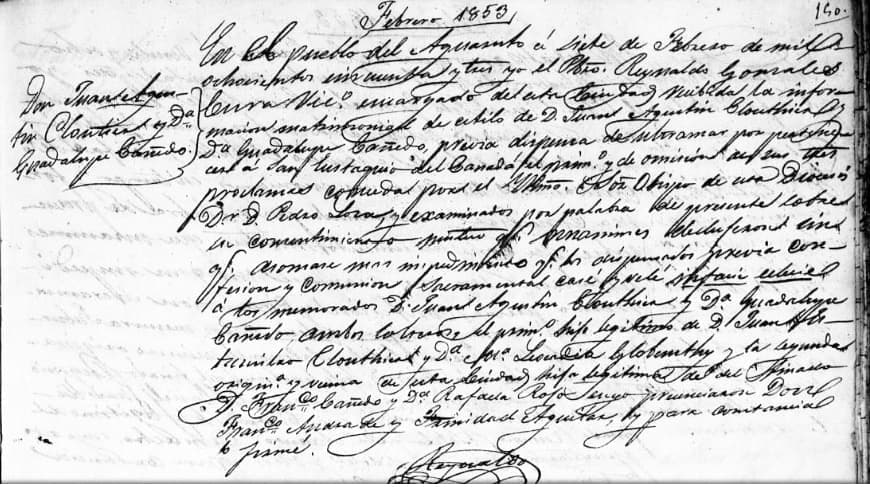 Febrero 1853
150.
Don Juan Agus-
tin Clouthier y Dª
Guadalupe Cañedo.
En el pueblo del á siete de Febrero de mil
ochocientos cincuenta y tres yo el Pbro. Reynaldo Gonzales
Cura Vicº. encargado del de esta Ciudad, recibida la infor
macion matrimonial de estilo de D. Juan Agustin Clouthier y
Dª Guadalupe Cañedo, previa dispensa de ultramar por pertenec
er á San Eustaquio del Canada el primº. y de omision de sus tres
proclamas por el Ylmo. Sor. Obispo de esta Diocesis
Dr. D Pedro Loza, y examinados por palabra de presente sobre
su consentimiento mutuo qe. sin
qe. mas impedimento qe. los dispensados previa con-
fesion y comunion sacramental casé y velé
á los memorados D. Juan Agustin Clouthier y Dª Guadalupe
Cañedo, ambos el primº. hijo legitimo de D. Juan
Clouthier y Dª Mª Leocadia y la segunda
origª. y vecina de esta Ciudad, hija legitima del finado
D. Francº. Cañedo y Dª Rafaela Rojo Don
Francº. Andrade y Trinidad Aguilar, y para constancia
lo firmé.
Reynaldo